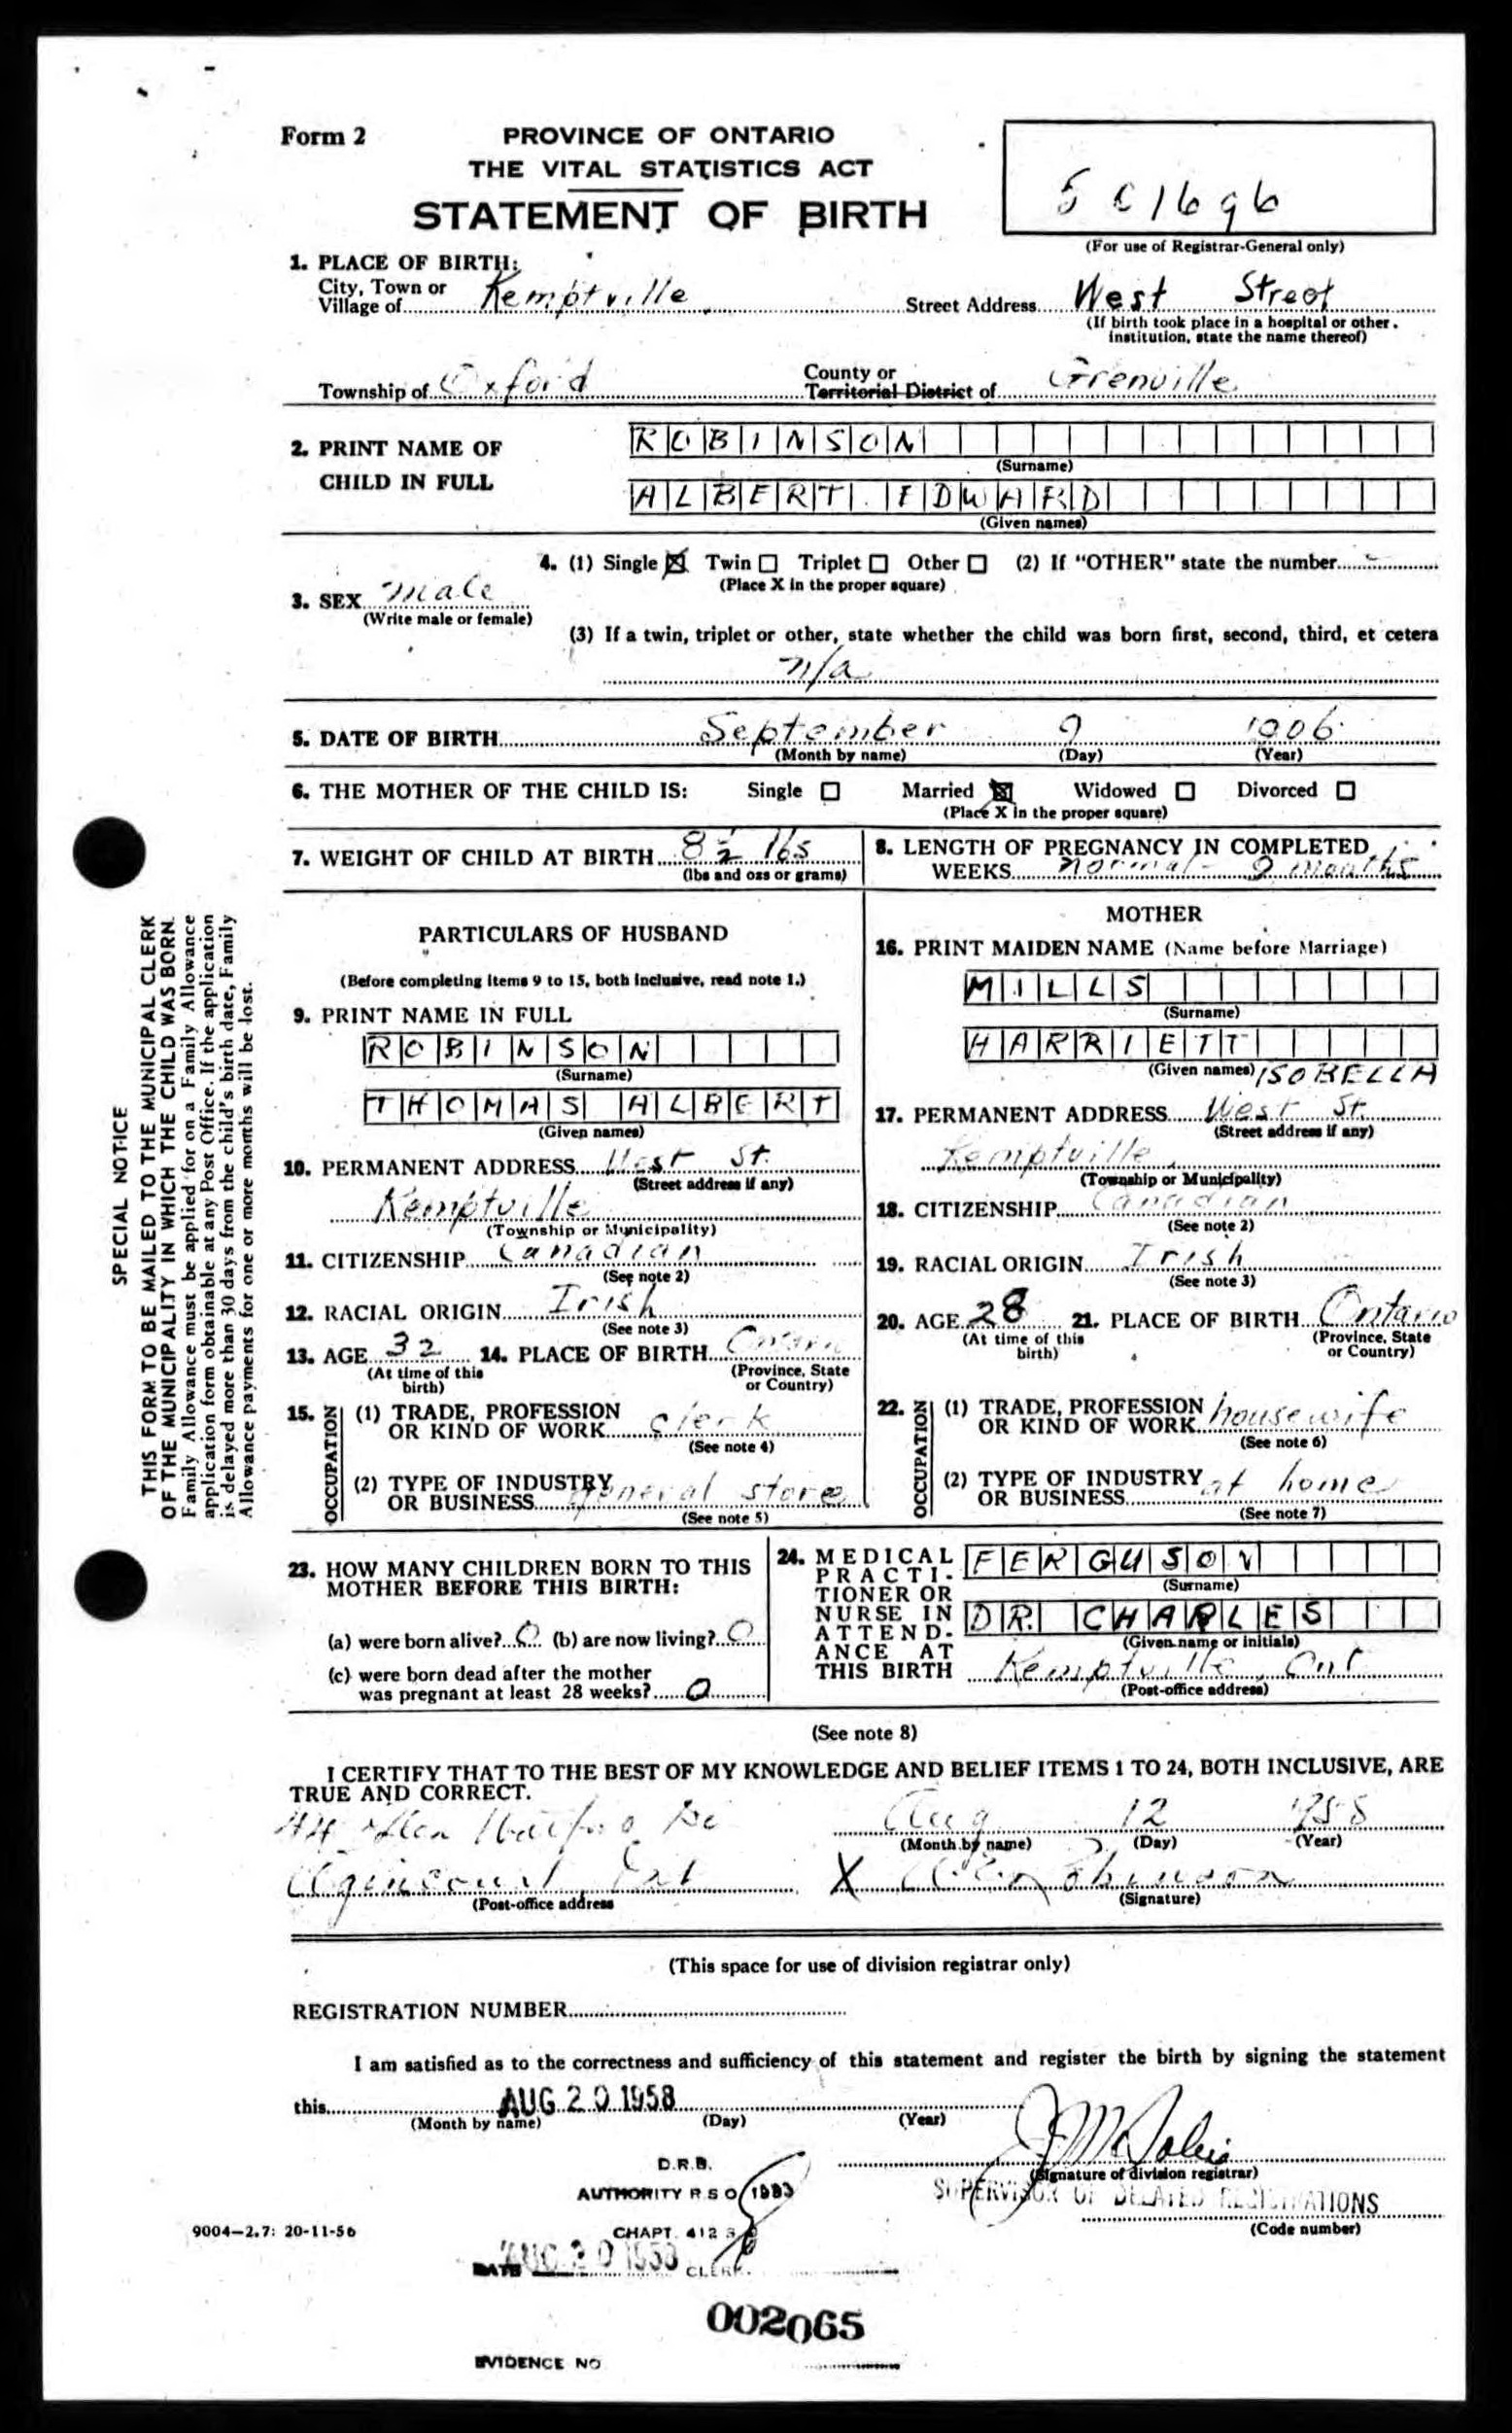 Form 2
PROVINCE OF ONTARIO
THE VITAL STATISTICS ACT
STATEMENT OF BIRTH
(For use of Registrar-General only)
1. PLACE OF BIRTH:
City, Town or
Village of Kemptville Street Address West Street
(If birth took place in a hospital or other
institution, state the name thereof)
Township of Oxford County or
Territorial District of Grenville
2. PRINT NAME OF
CHILD IN FULL
ROBINSON
(Surname)
ALBERT EDWARD
(Given names)
4. (1) Single X Twin Triplet Other (2) If "OTHER" state the number
(Place X in the proper square)
3. SEX Male
(Write male or female)
(3) If a twin, triplet or other, state whether the child was born first, second, third, et cetera
n/a
5. DATE OF BIRTH September 9 1906
(Month by name) (Day) (Year)
6. THE MOTHER OF THE CHILD IS: Single Married X Widowed Divorced
(Place X in the proper square)
7. WEIGHT OF CHILD AT BIRTH 8½ lbs
(lbs and ozs or grams)
8. LENGTH OF PREGNANCY IN COMPLETED
WEEKS normal - 9 months
PARTICULARS OF HUSBAND
(Before completing items 9 to 15, both inclusive, read note 1.)
9. PRINT NAME IN FULL
ROBINSON
(Surname)
THOMAS ALBERT
(Given names)
10. PERMANENT ADDRESS West St.
(Street address if any)
Kemptville
(Township or Municipality)
11. CITIZENSHIP Canadian
(See note 2)
12. RACIAL ORIGIN Irish
(See note 3)
13. AGE 32 14. PLACE OF BIRTH Ontario
(At time of this
birth)
(Province, State
or Country)
15. OCCUPATION
(1) TRADE, PROFESSION
OR KIND OF WORK clerk
(See note 4)
(2) TYPE OF INDUSTRY
OR BUSINESS general store
(See note 5)
MOTHER
16. PRINT MAIDEN NAME (Name before Marriage)
MILLS
(Surname)
HARRIETT
(Given names) ISOBELLA
17. PERMANENT ADDRESS West St.
(Street address if any)
Kemptville
(Township or Municipality)
18. CITIZENSHIP Canadian
(See note 2)
19. RACIAL ORIGIN Irish
(See note 3)
20. AGE 28 21. PLACE OF BIRTH Ontario
(At time of this
birth)
(Province, State
or Country)
22. OCCUPATION
(1) TRADE, PROFESSION
OR KIND OF WORK housewife
(See note 6)
(2) TYPE OF INDUSTRY
OR BUSINESS at home
(See note 7)
23. HOW MANY CHILDREN BORN TO THIS
MOTHER BEFORE THIS BIRTH:
(a) were born alive? 0 (b) are now living? 0
(c) were born dead after the mother
was pregnant at least 28 weeks? 0
24. MEDICAL
PRACTI-
TIONER OR
NURSE IN
ATTEND-
ANCE AT
THIS BIRTH
FERGUSON
(Surname)
DR. CHARLES
(Given name or initials)
Kemptville, Ont
(Post-office address)
(See note 8)
I CERTIFY THAT TO THE BEST OF MY KNOWLEDGE AND BELIEF ITEMS 1 TO 24, BOTH INCLUSIVE, ARE
TRUE AND CORRECT.
44 Glen
Aug 12 1958
(Month by name) (Day) (Year)
Agincourt Ont
(Post-office address
X
(Signature)
(This space for use of division registrar only)
REGISTRATION NUMBER
I am satisfied as to the correctness and sufficiency of this statement and register the birth by signing the statement
this AUG 20 1958
(Month by name) (Day) (Year)
(Signature of division registrar)
SUPERVISOR OF DELAYED REGISTRATIONS
(Code number)
D.R.B.
AUTHORITY R S O
CHAPT. 412 S
DATE AUG 20 1958 CLERK
9004—2.7: 20-11-56
002065
EVIDENCE NO
SPECIAL NOTICE
THIS FORM TO BE MAILED TO THE MUNICIPAL CLERK
OF THE MUNICIPALITY IN WHICH THE CHILD WAS BORN.
Family Allowance must be applied for on a Family Allowance
application form obtainable at any Post Office. If the application
is delayed more than 30 days from the child's birth date, Family
Allowance payments for one or more months will be lost.